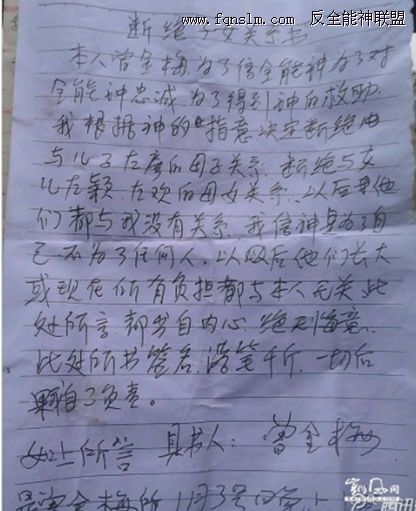 www.fqnslm.com 反全能神联盟
断绝子女关系书
本人曾金梅,为了信全能神为了对
全能神忠诚,为了得到神的救助.
我根据神的"指意决定断绝
与儿子左彦的母子关系.断绝与女
儿左颖.左欢的母女关系.以后
们都与我没有关系.我信神为了自
己不为了任何人.以后他们长大
或现在所有负担都与本人无关.此
处所言都出自内心.绝不悔意.
此处所书签名.落笔千斤.一切后
果自己负责。
如上所言 具书人:曾金梅
金梅所 11月3号
凯风网
腾讯